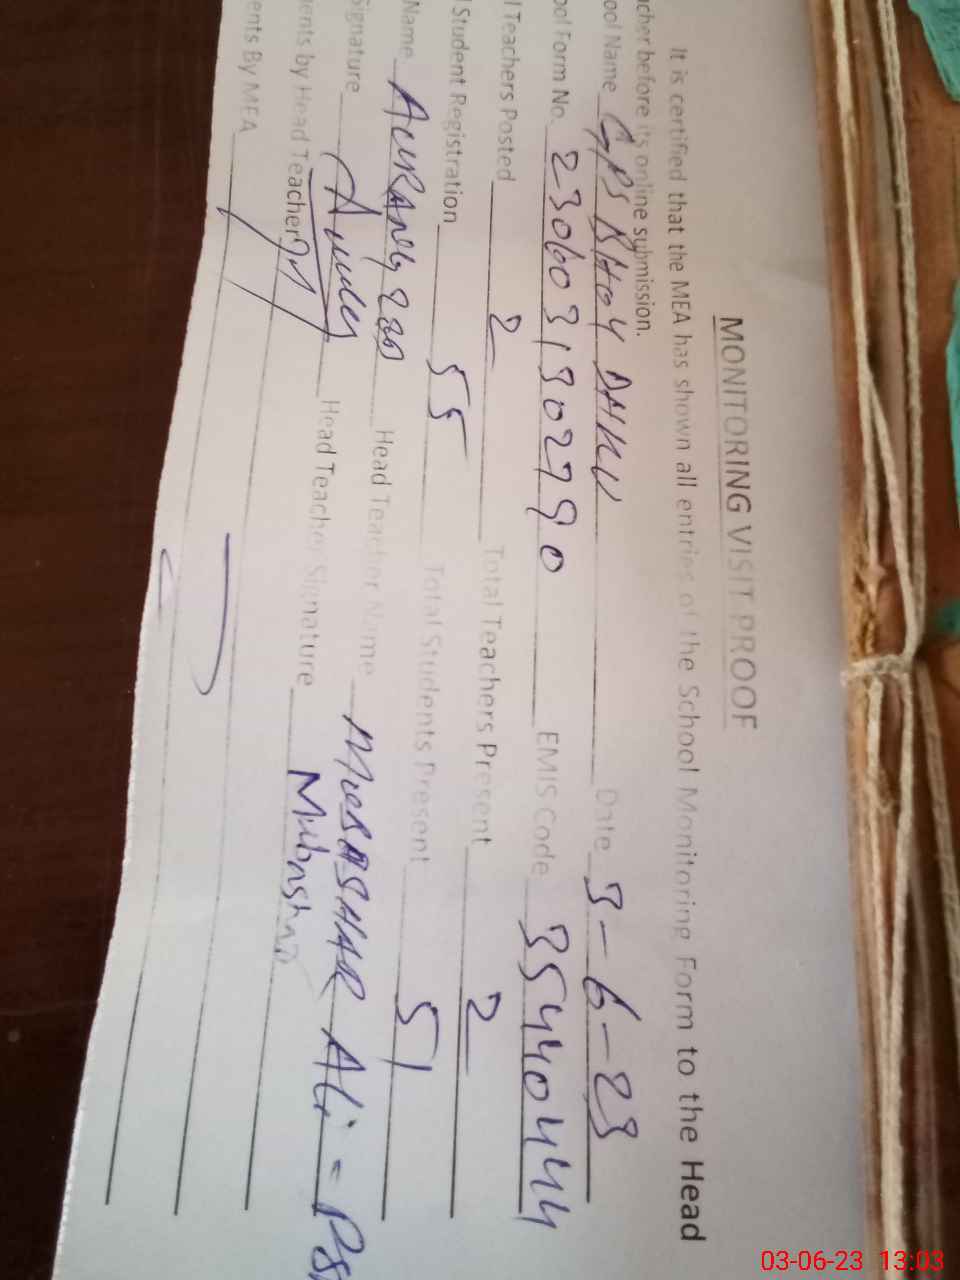 MONITORING VISIT PROOF
It is certified that the MEA has shown all entries of the School Monitoring Form to the Head
cher before its online submission.
ool Name GPS BHOY DHKU Date 3-6-23
ool Form No. 2306031302790 EMIS Code 35440444
l Teachers Posted 2 Total Teachers Present 2
l Student Registration 55 Total Students Present 51
Name Head Teacher Name MUBASHAR Ali = PS
Signature Head Teacher Signature Mubashar
ents by Head Teacher
ents By MEA
03-06-23 13:03